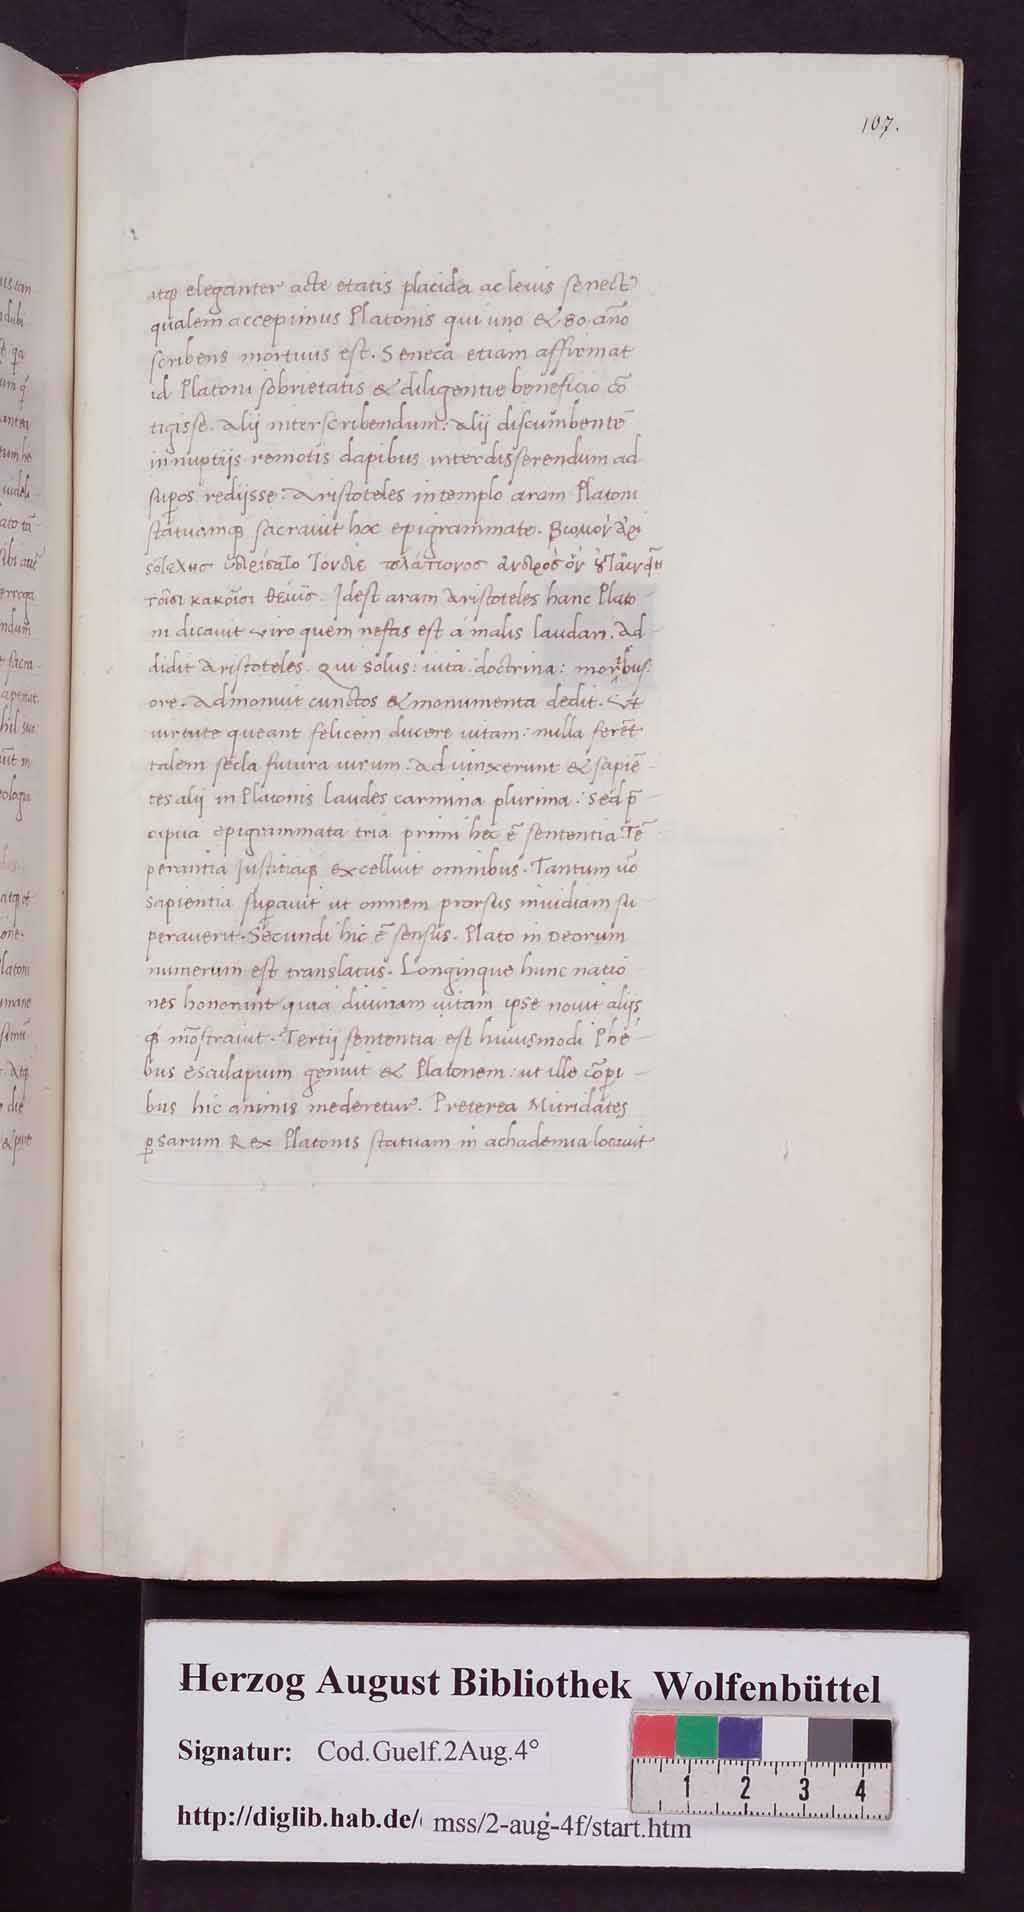 107.
atq̃ eleganter acte etatis placida ac leuis senect᷑
qualem accepimus Platonis qui uno & 80. año
scribens mortuus est. Seneca etiam affirmat
id Platoni sobrietatis & diligentie beneficio cõ
tigisse. Alij inter scribendum: Alij discumbentẽ
in nuptijs remotis dapibus inter disserendum ad
suꝑos redijsse. Aristoteles in templo aram Platoni
statuamq̃ sacrauit hoc epigrammate. βωμον ἀρι
τοῖσι κακοῖσι θέμις. Idest aram Aristoteles hanc Plato-
ni dicauit uiro quem nefas est a malis laudari. Ad-
didit Aristoteles. Qui solus: uita: doctrina: moribus:
ore. Admonuit cunctos & monumenta dedit. Ut
uirtute queant felicem ducere uitam: nulla ferẽt
talem secla futura uirum. Adiunxerunt & sapiẽ-
tes alij in Platonis laudes carmina plurima. Sed p̃-
cipua epigrammata tria primi hec ẽ sententia. Tẽ
perantia Justitiaq̃ excelluit omnibus. Tantum uõ
sapientia suꝑauit ut omnem prorsus inuidiam su-
perauerit. Secundi hic ẽ sensus. Plato in Deorum
numerum est translatus. Longinque hunc natio-
nes honorant quia diuinam uitam ipse nouit alijs
q̃ mõstrauit. Tertij sententia est huiusmodi Phe-
bus esculapium genuit & Platonem: ut ille corꝑi-
bus hic animis mederetur. Preterea Mitridates
ꝑsarum Rex Platonis statuam in achademia locauit
Herzog August Bibliothek Wolfenbüttel
Signatur: Cod.Guelf.2Aug.4°
http://diglib.hab.de/ mss/2-aug-4f/start.htm
1 2 3 4